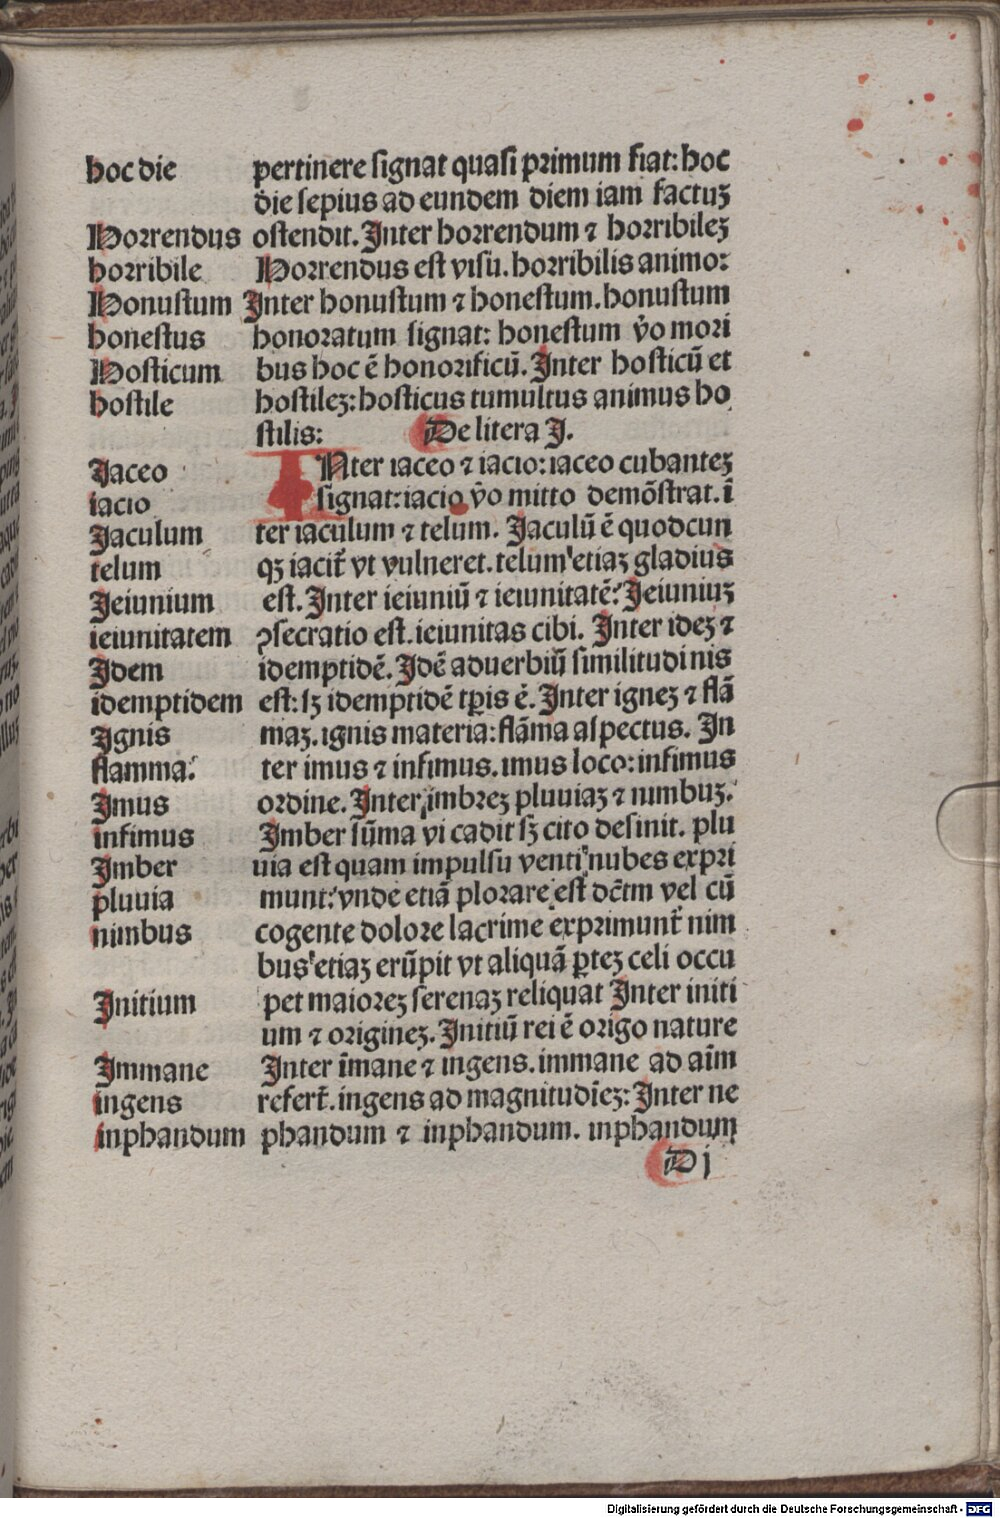 hoc die pertinere signat quasi primum fiat: hoc
die sepius ad eundem diem iam factuꝫ
Horrendus ostendit. Inter horrendum ⁊ horribileꝫ
horribile Horrendus est visu. horribilis animo:
Honustum Inter honustum ⁊ honestum. honustum
honestus honoratum signat: honestum v̄o mori
Hosticum bus hoc ē honorificū. Inter hosticū et
hostile hostileꝫ: hosticus tumultus animus ho
stilis: De litera J.
Jaceo INter iaceo ⁊ iacio: iaceo cubanteꝫ
iacio signat: iacio v̄o mitto demōstrat. ī
Jaculum ter iaculum ⁊ telum. Jaculū ē quodcun
telum qꝫ iacit̄ vt vulneret. telum etiaꝫ gladius
Jeiunium est. Inter ieiuniū ⁊ ieiunitatē: Jeiuniuꝫ
ieiunitatem ꝯsecratio est. ieiunitas cibi. Inter ideꝫ ⁊
Idem idemptidē. Idē aduerbiū similitudinis
idemptidem est: sꝫ idemptidē tꝑis ē. Inter igneꝫ ⁊ flā
Ignis maꝫ. ignis materia: flāma aspectus. In
flamma: ter imus ⁊ infimus. imus loco: infimus
Imus ordine. Inter imbreꝫ pluuiaꝫ ⁊ nimbuꝫ.
infimus Imber sūma vi cadit sꝫ cito desinit. plu
Imber uia est quam impulsu venti nubes expri
pluuia munt: vnde etiā plorare est dc̄tm vel cū
nimbus cogente dolore lacrime exprimunt̄ nim
bus etiaꝫ erūpit vt aliquā ꝑteꝫ celi occu
Initium pet maioreꝫ serenaꝫ reliquat Inter initi
um ⁊ origineꝫ. Initiū rei ē origo nature
Immane Inter īmane ⁊ ingens. immane ad aīm
ingens refert̄. ingens ad magnitudīeꝫ: Inter ne
inphandum phandum ⁊ inphandum. inphandum
D j
Digitalisierung gefördert durch die Deutsche Forschungsgemeinschaft - DFG